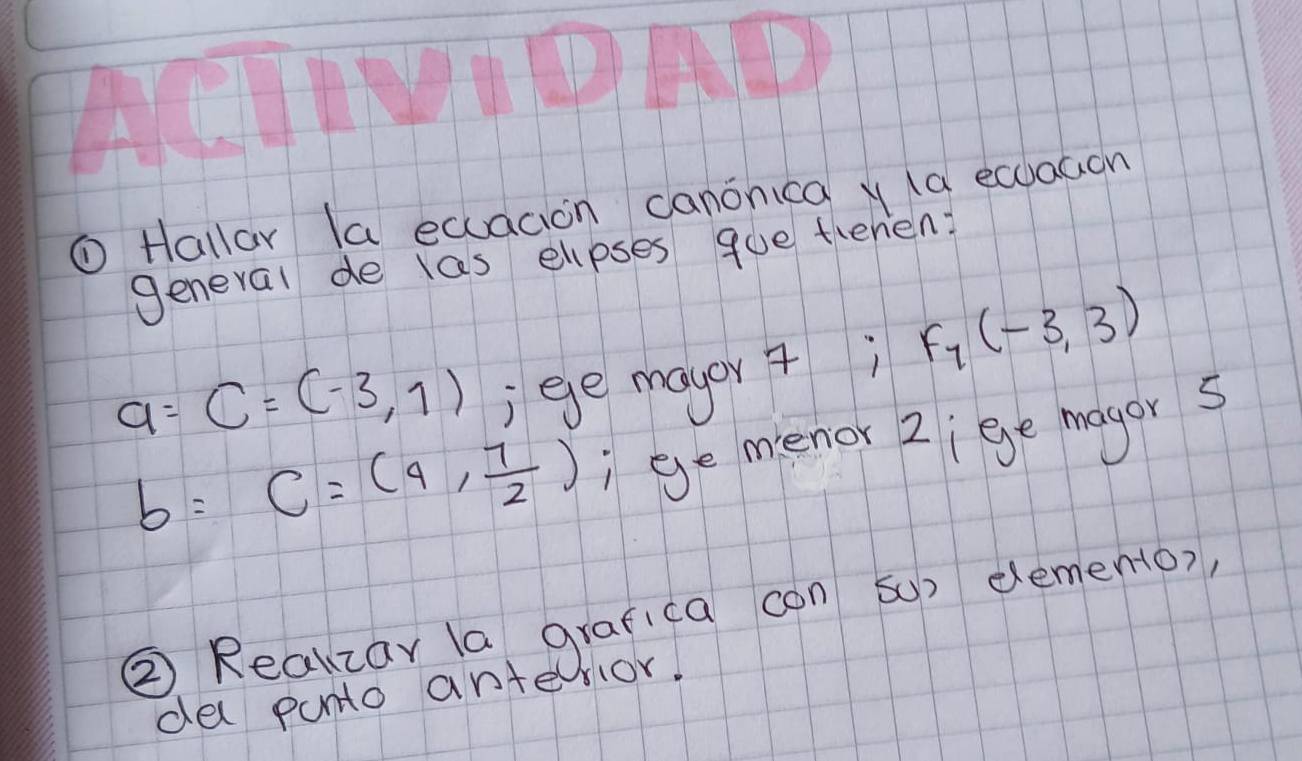 ACTIVIDAD
① Hallar la ecuación canónica y la ecuación
general de las elipses que tienen:
a = C = (-3, 1) ; eje mayor 7 ; F1 (-3, 3)
b = C = (4, 1/2) ; eje menor 2 ; eje mayor 5
② Realizar la grafica con sus elementos,
del punto anterior.